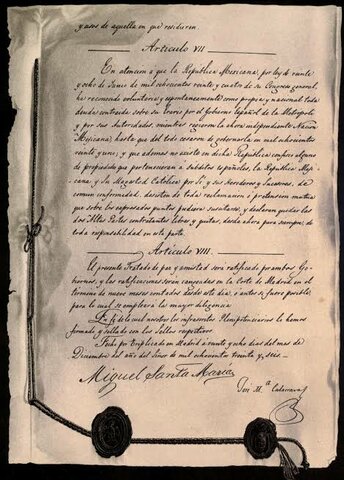 y usos de aquella en que residieren.
Articulo VII
En atencion a que la República Mexicana, por ley de veinte
y ocho de Junio de mil ochocientos veinte y cuatro de su Congreso general,
ha reconocido voluntaria y espontaneamente como propia y nacional toda
deuda contraida sobre su Erario por el Gobierno Español de la Metropoli
y por sus Autoridades, mientras rigieron la ahora independiente Nacion
Mexicana, hasta que del todo cesaron de gobernarla en mil ochocientos
veinte y uno; y que ademas no existe en dicha República confisco alguno
de propiedades que pertenecieran a Subditos españoles, la República Mexi-
cana, y Su Magestad Católica por Sí y sus herederos y sucesores, de
comun conformidad, desisten de toda reclamacion o pretension mutua
que sobre los espresados puntos pudiera suscitarse, y declaran quedar las
dos Altas Partes contratantes libres y quitas, desde ahora para siempre, de
toda responsabilidad en esta parte.
Articulo VIII.
El presente Tratado de paz y amistad será ratificado por ambos Go-
biernos, y las ratificaciones serán cangeadas en la Corte de Madrid en el
termino de nueve meses contados desde este día, o antes si fuere posible,
para lo cual se empleará la mayor diligencia.
En fé de lo cual nosotros los infrascritos Plenipotenciarios lo hemos
firmado y sellado con los Sellos respectivos.
Fecho por triplicado en Madrid á veinte y ocho dias del mes de
Diciembre del año del Señor de mil ochocientos treinta y seis.
Miguel Santa Maria
José M.ª Calatrava